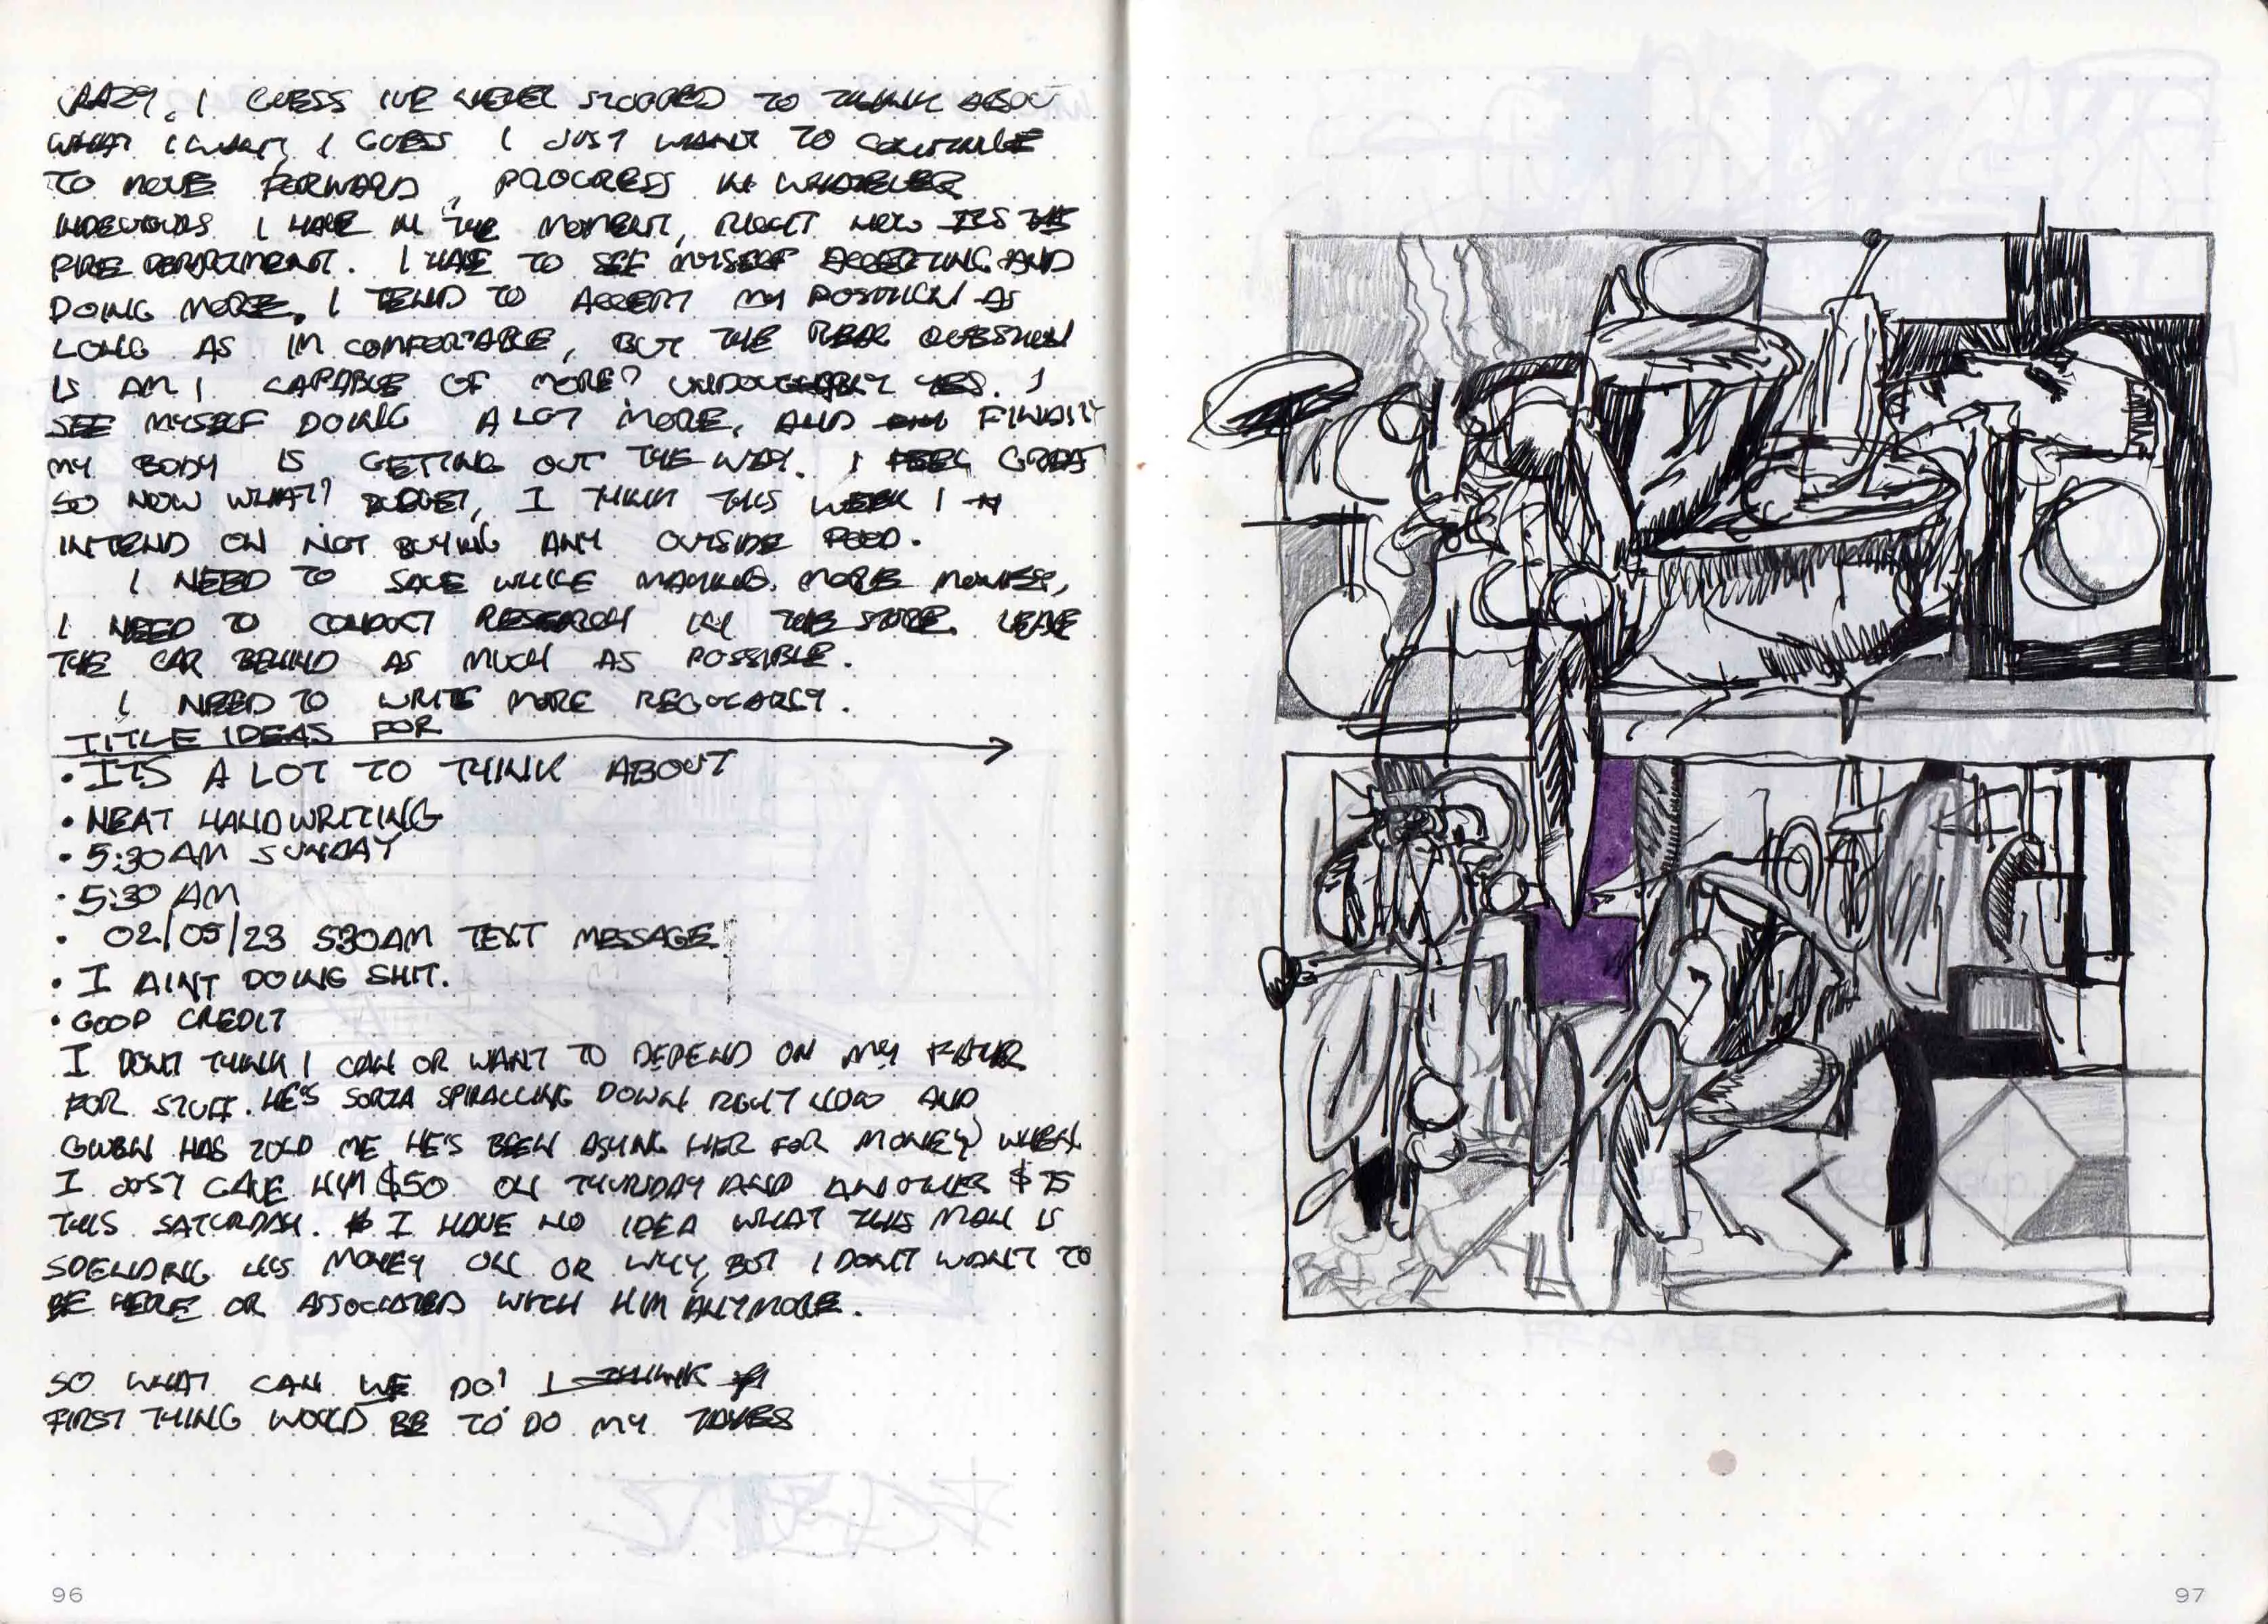 CRAZY, I GUESS IVE NEVER STOPPED TO THINK ABOUT
WHAT I WANT, I GUESS I JUST WANT TO CONTINUE
TO MOVE FORWARD, PROGRESS IN WHATEVER
INDEVOURS I HAVE IN THE MOMENT, RIGHT NOW ITS THE
FIRE DEPARTMENT. I HAVE TO SEE MYSELF ACCEPTING AND
DOING MORE, I TEND TO ACCEPT MY POSITION AS
LONG AS IM COMFORTABLE, BUT THE REAL QUESTION
IS AM I CAPABLE OF MORE? UNDOUGHTABLY YES. I
SEE MYSELF DOING A LOT MORE, AND FINALLY
MY BODY IS GETTING OUT THE WAY. I FEEL GREAT
SO NOW WHAT? BUDGET, I THINK THIS WEEK I
INTEND ON NOT BUYING ANY OUTSIDE FOOD.
I NEED TO SAVE WHILE MAKING MORE MONEY,
I NEED TO CONDUCT RESEARCH IN THE STORE. LEAVE
THE CAR BEHIND AS MUCH AS POSSIBLE.
I NEED TO WRITE MORE REGULARLY.
TITLE IDEAS FOR
• ITS A LOT TO THINK ABOUT
• NEAT HANDWRITING
• 5:30AM SUNDAY
• 5:30 AM
• 02/05/23 530AM TEXT MESSAGE
• I AINT DOING SHIT.
• GOOD CREDIT
I DONT THINK I CAN OR WANT TO DEPEND ON MY FATHER
FOR STUFF. HE'S SORTA SPIRALLING DOWN RIGHT NOW AND
GWEN HAS TOLD ME HE'S BEEN ASKING HER FOR MONEY, WHEN
I JUST GAVE HIM $50 ON THURSDAY AND ANOTHER $75
THIS SATURDAY. I HAVE NO IDEA WHAT THIS MAN IS
SPENDING HIS MONEY ON OR WHY, BUT I DONT WANT TO
BE HERE OR ASSOCIATED WITH HIM ANYMORE.
SO WHAT CAN WE DO? I THINK
FIRST THING WOULD BE TO DO MY TAXES
96
97